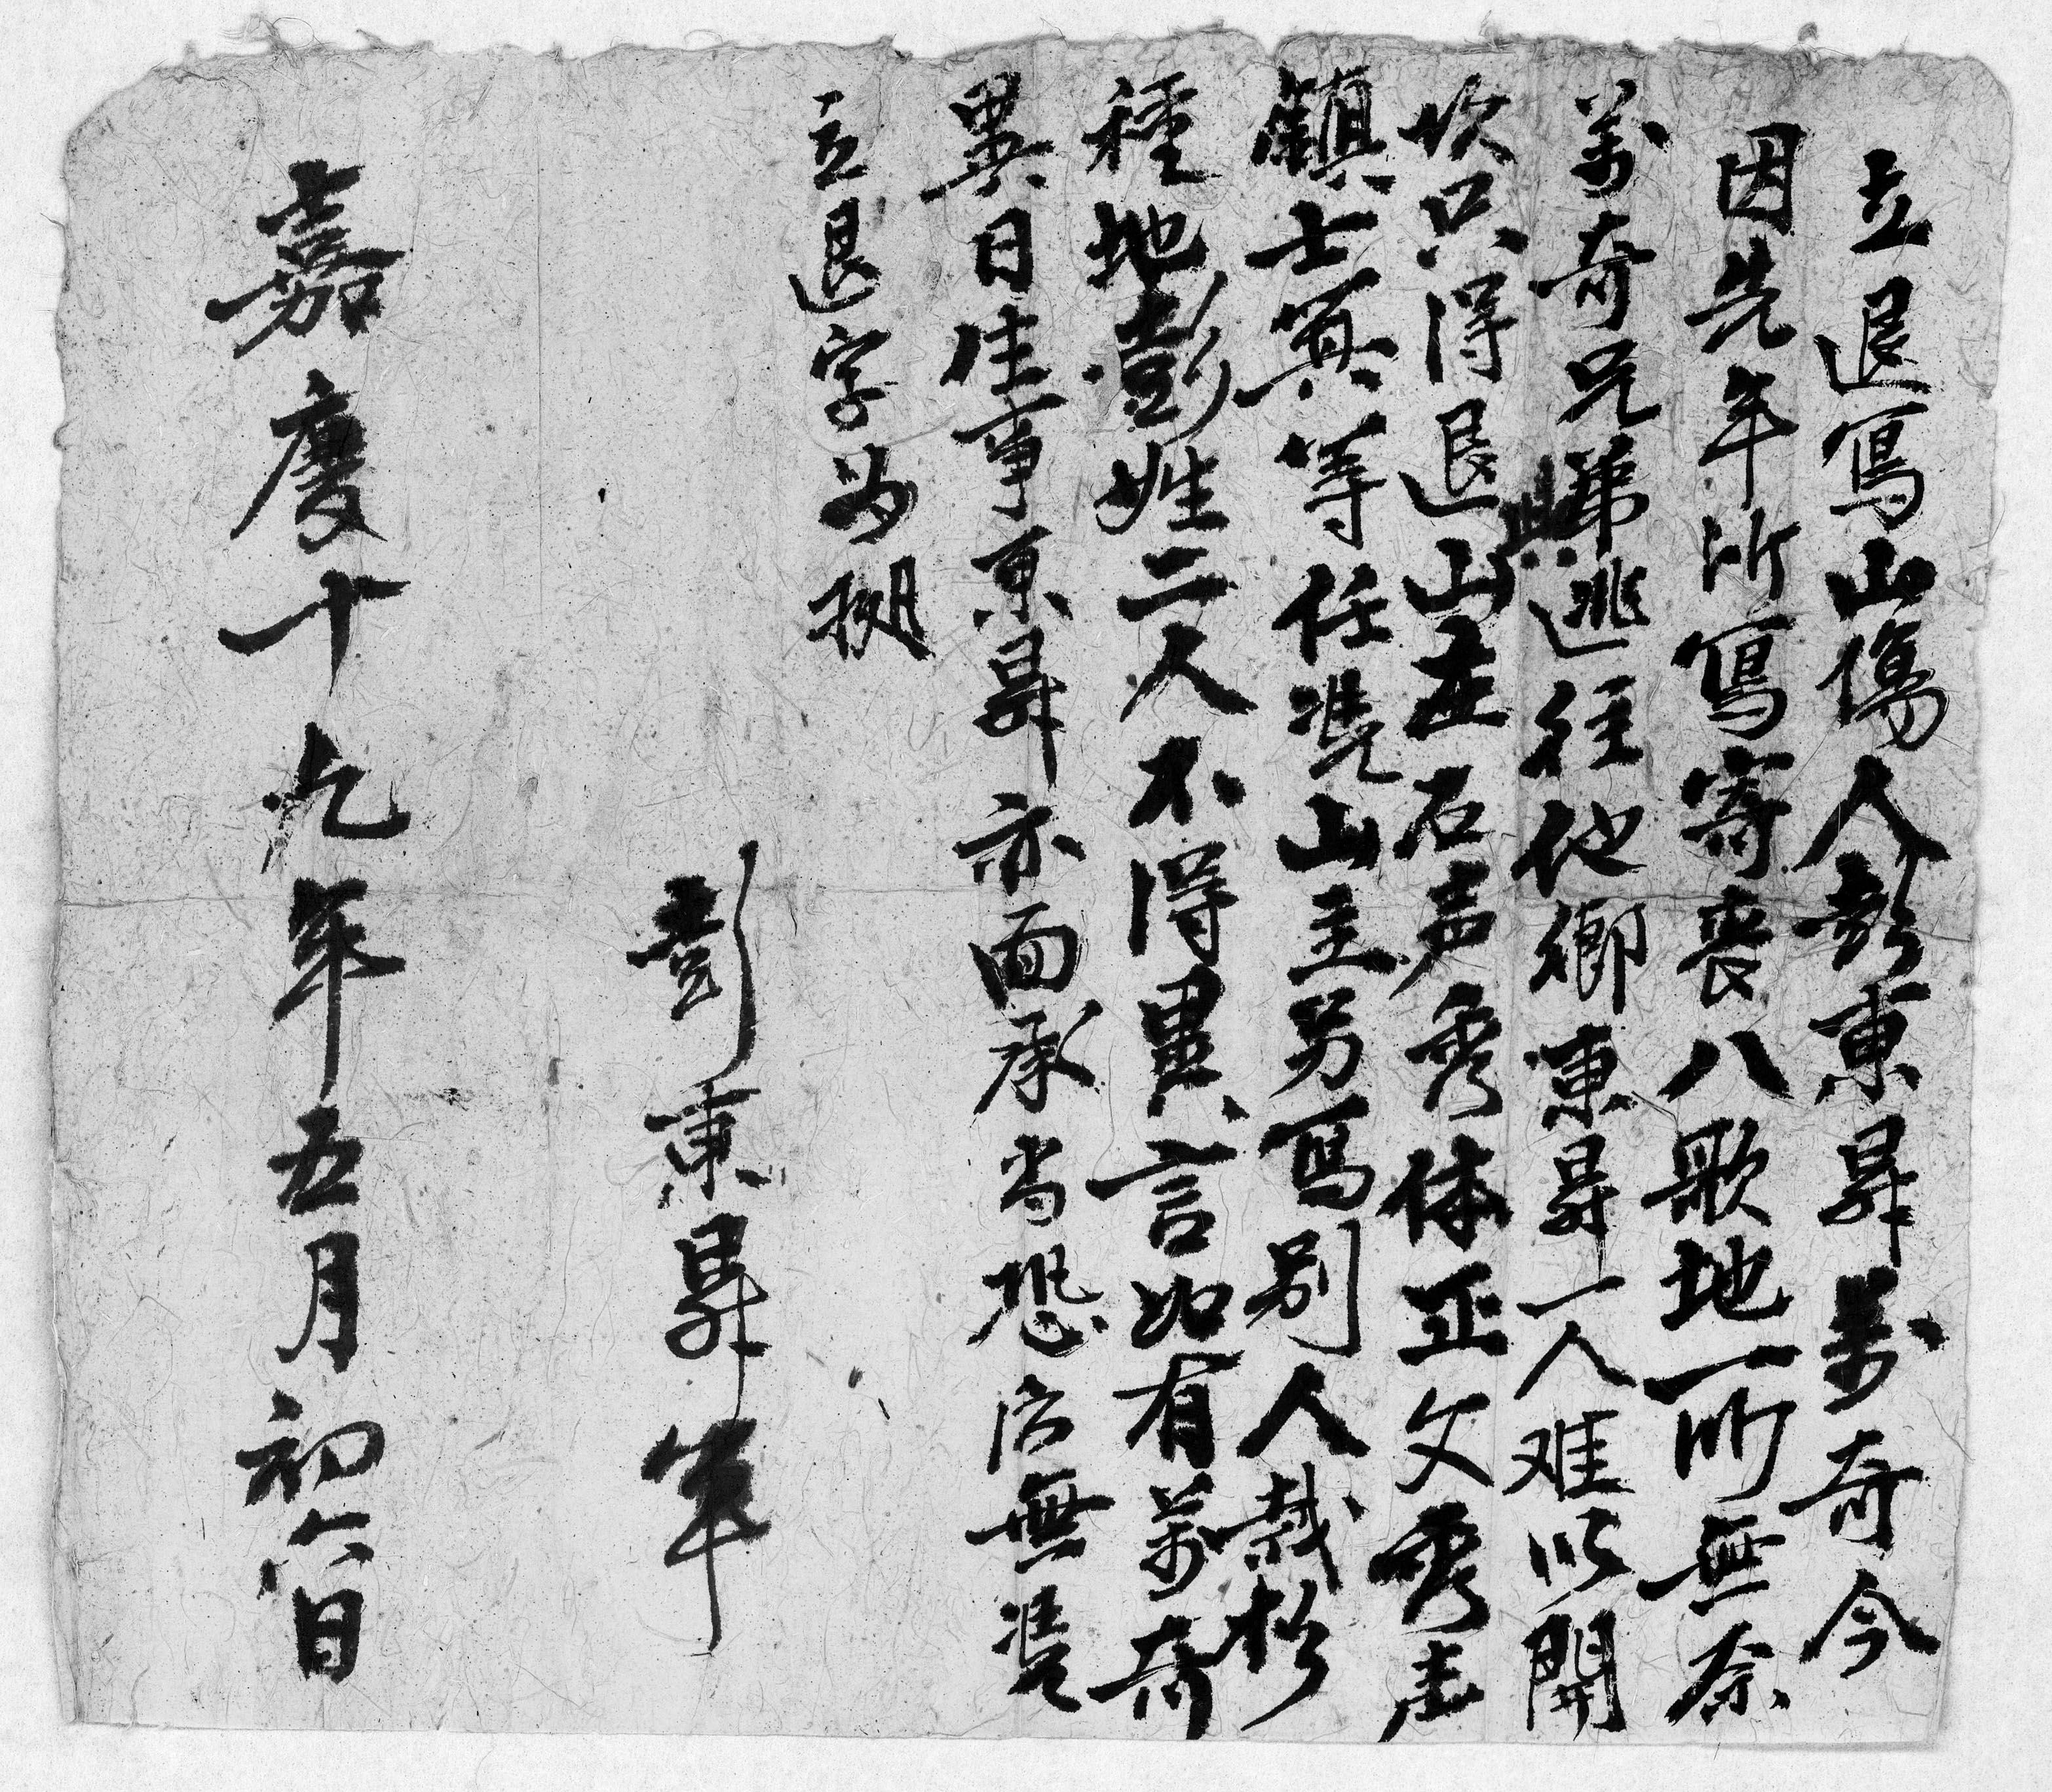 立退寫山塲人彭東昇萬奇今
因先年所寫寄丧八歌地一所無奈
萬奇兄苐與逃往他鄉東昇一人难以開
坎只得退山主石声秀体正文秀
鎮士等任凴山主另寫别人栽杉
種地彭姓二人不得異言如有萬奇
異日生事東昇亦面承当恐后無凴
立退字為据
彭東昇筆
嘉慶十九年五月初六日